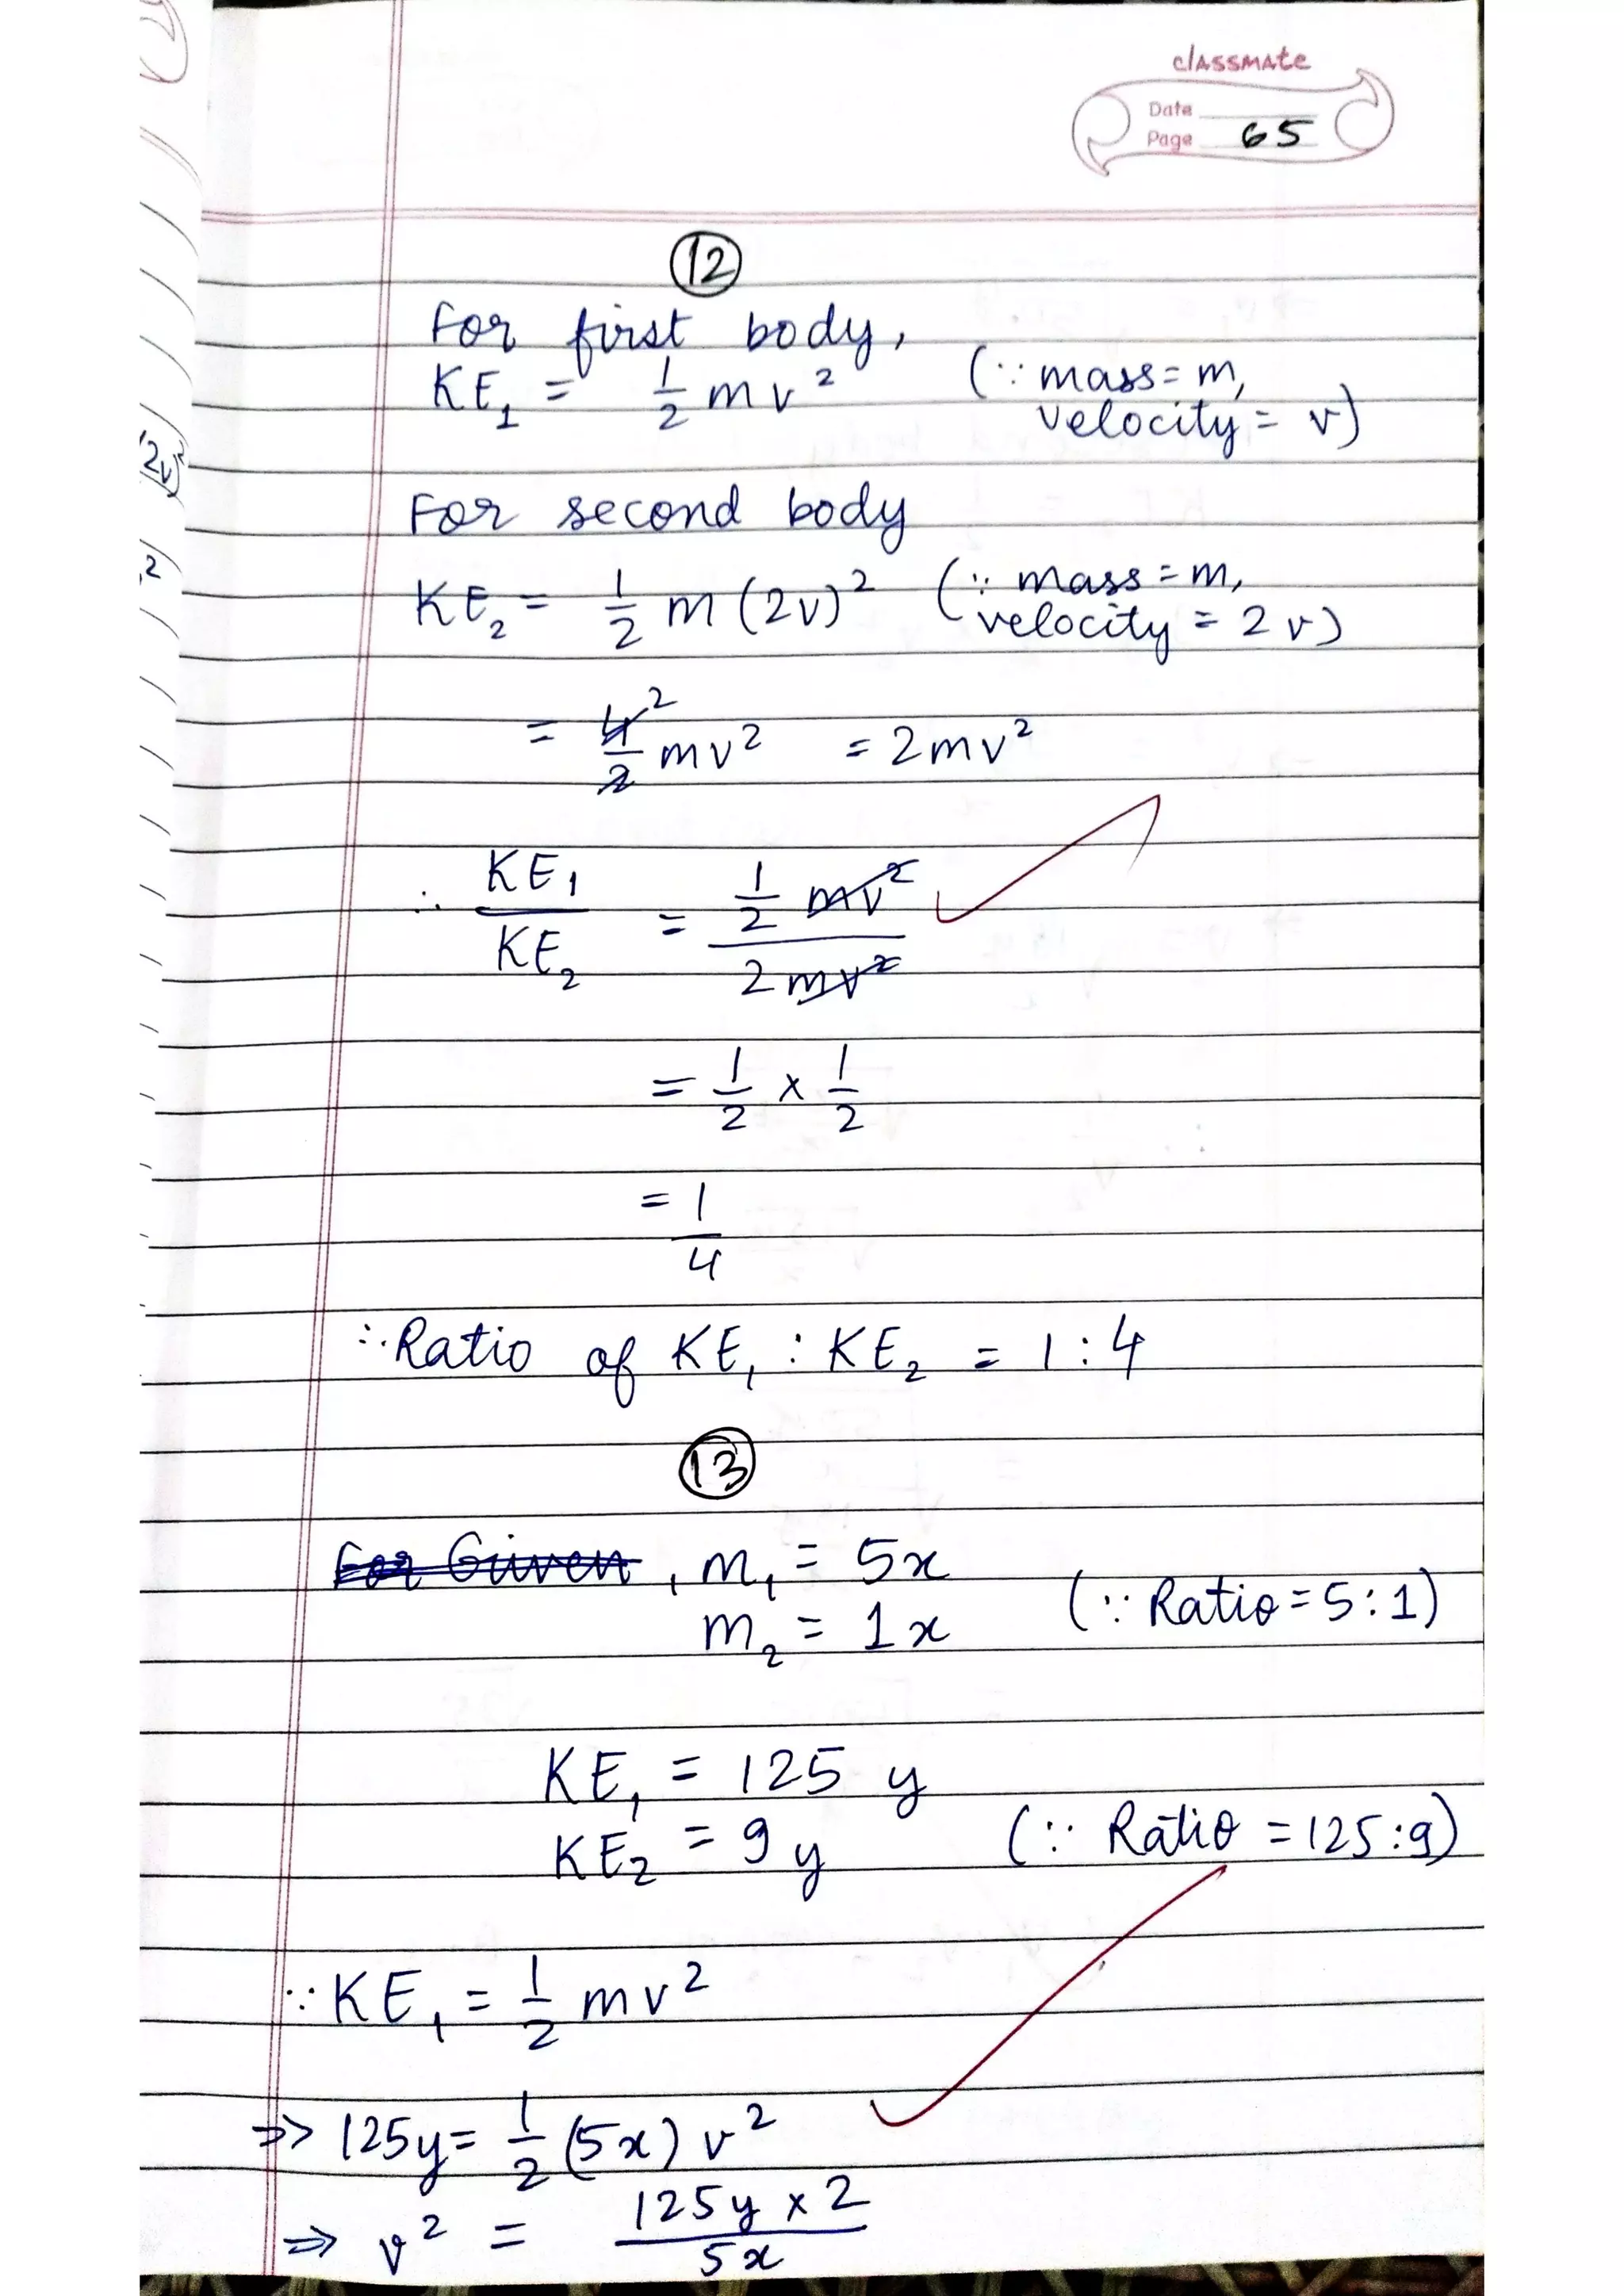 classmate
Date
Page 65
12
For first body,
KE₁ = 1/2 mv² (∵ mass = m,
velocity = v)
2v)²
For second body
2
KE₂ = 1/2 m (2v)² (∵ mass = m,
velocity = 2v)
= 4² / 2 mv² = 2mv²
∴ KE₁ / KE₂ = 1/2 mv² / 2mv²
= 1/2 × 1/2
= 1/4
∴ Ratio of KE₁ : KE₂ = 1 : 4
13
For Given, m₁ = 5x
m₂ = 1x (∵ Ratio = 5 : 1)
KE₁ = 125 y
KE₂ = 9 y (∵ Ratio = 125 : 9)
∵ KE₁ = 1/2 mv²
⇒ 125y = 1/2 (5x) v²
⇒ v² = 125y × 2 / 5x